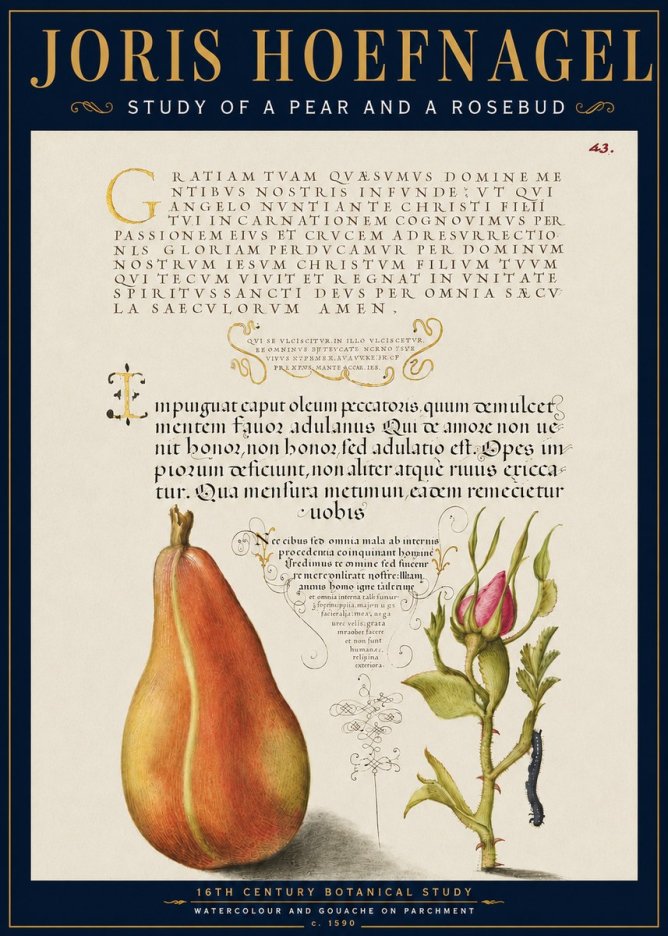 JORIS HOEFNAGEL
STUDY OF A PEAR AND A ROSEBUD
43.
GRATIAM TVAM QVÆSVMVS DOMINE ME
NTIBVS NOSTRIS INFVNDE: VT QVI
ANGELO NVNTIANTE CHRISTI FILII
TVI INCARNATIONEM COGNOVIMVS PER
PASSIONEM EIVS ET CRVCEM AD RESVRRECTIO-
NIS GLORIAM PERDVCAMVR PER DOMINVM
NOSTRVM IESVM CHRISTVM FILIVM TVVM
QVI TECVM VIVIT ET REGNAT IN VNITATE
SPIRITVS SANCTI DEVS PER OMNIA SÆCV-
LA SAECVLORVM AMEN.
QVI SE VLCISCITVR. IN ILLO VLCISCETVR.
EE OMNINVS
VIVVS
Impinguat caput oleum peccatoris, quum demulcet
mentem favor adulanus Qui de amore non ve-
nit honor, non honor, sed adulatio est. Opes im
piorum deficiunt, non aliter atque rivus exicca-
tur. Qua mensura metimun, eadem remecietur
uobis
Nec cibus sed omnia mala ab internis
procedentia coinquinant homine
omine sed sincere
animis homo igne
et omnia interna
grata
facere
et non sunt
humanæ,
relipina
exteriora
16TH CENTURY BOTANICAL STUDY
WATERCOLOUR AND GOUACHE ON PARCHMENT
c. 1590